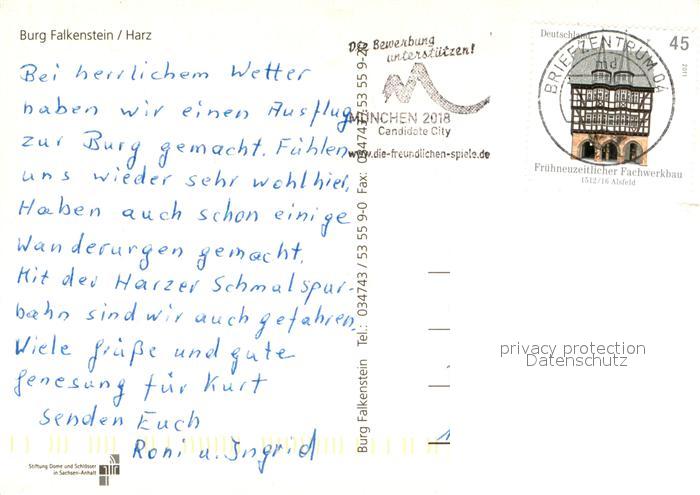 Burg Falkenstein / Harz
Bei herrlichem Wetter
haben wir einen Ausflug
zur Burg gemacht. Fühlen
uns wieder sehr wohl hier.
Haben auch schon einige
Wanderungen gemacht.
Mit der Harzer Schmalspur-
bahn sind wir auch gefahren.
Viele Grüße und gute
Genesung für Kurt
senden Euch
Roni u. Ingrid
Stiftung Dome und Schlösser
in Sachsen-Anhalt
Burg Falkenstein Tel.: 034743 / 53 55 9-0 Fax: 034743 / 53 55 9-22
Die Bewerbung
unterstützen!
MÜNCHEN 2018
Candidate City
www.die-freundlichen-spiele.de
Deutschland 45
2011
BRIEFZENTRUM 04
md
Frühneuzeitlicher Fachwerkbau
1512/16 Alsfeld
privacy protection
Datenschutz